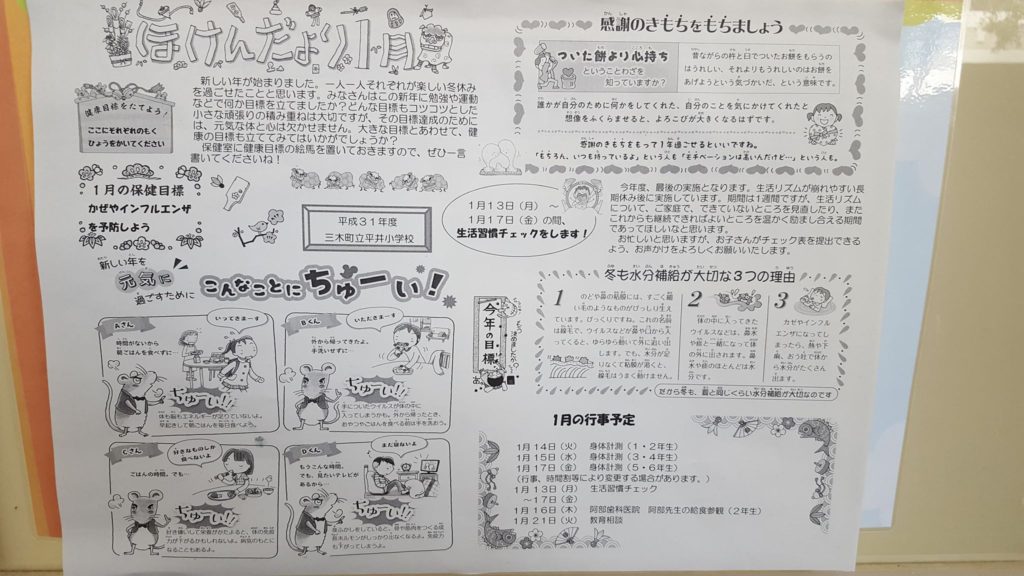 ほけんだより1月
新しい年が始まりました。一人一人それぞれが楽しい冬休み
を過ごせたことと思います。みなさんはこの新年に勉強や運動
などで何か目標を立てましたか？どんな目標もコツコツとした
小さな頑張りの積み重ねは大切ですが、その目標達成のために
は、元気な体と心は欠かせません。大きな目標とあわせて、健
康の目標も立ててみてはいかがでしょうか？
保健室に健康目標の絵馬を置いておきますので、ぜひ一言
書いてくださいね！
健康目標をたてよう！
ここにそれぞれのもく
ひょうをかいてください
1月の保健目標
かぜやインフルエンザ
を予防しよう
平成31年度
三木町立平井小学校
感謝のきもちをもちましょう
ついた餅より心持ち
ということわざを
知っていますか？
昔ながらの杵と臼でついたお餅をもらうの
はうれしい、それよりもうれしいのはお餅を
あげようという気づかいだ、という意味です。
誰かが自分のために何かをしてくれた、自分のことを気にかけてくれたと
想像をふくらませると、よろこびが大きくなるはずです。
感謝のきもちをもって1年過ごせるといいですね。
「もちろん、いつも持っているよ」という人も「モチベーションは高いんだけど…」という人も。
1月13日（月）～
1月17日（金）の間、
生活習慣チェックをします！
今年度、最後の実施となります。生活リズムが崩れやすい長
期休み後に実施しています。期間は1週間ですが、生活リズム
について、ご家庭で、できていないところを見直したり、また
これからも継続できればよいところを温かく励まし合える期間
であってほしいなと思います。
お忙しいと思いますが、お子さんがチェック表を提出できる
よう、お声かけをよろしくお願いいたします。
新しい年を
元気に
過ごすために
こんなことにちゅーい！
Aさん
いってきまーす
時間がないから
朝ごはんを食べずに…
ちゅーい!!
体も脳もエネルギーが足りていないよ。
早起きして朝ごはんを毎日食べよう。
Bくん
いただきまーす
外から帰ってきたよ。
手洗いせずに…
ちゅーい!!
手についたウイルスが体の中に
入ってしまうかも。外から帰ったとき、
おやつやごはんを食べる前は手を洗おう。
Cさん
好きなものしか
食べないよ
ごはんの時間。でも…
ちゅーい!!
好き嫌いして栄養がかたよると、体の免疫
力が下がるかもしれないよ。病気のもとに
なることもあるよ。
Dくん
まだ寝ないよ
もうこんな時間。
でも、見たいテレビが
あるから…
ちゅーい!!
夜ふかしをしていると、骨や筋肉をつくる成
長ホルモンがしっかり出なくなるよ。免疫力
も下がってしまうよ。
今年・目標
もう決めましたか？
冬も水分補給が大切な3つの理由
1
のどや鼻の粘膜には、すごく細
い毛のようなものがびっしり生え
ています。びっくりですね。これの名前
は線毛で、ウイルスなどが鼻や口から入
ってくると、ゆらゆら動いて外に追い出
します。でも、水分が足
りなくて粘膜が渇くと、
線毛はうまく動けません。
2
体の中に入ってきた
ウイルスなどは、鼻水
や痰と一緒になって体
の外に出されます。鼻
水や痰のほとんどは水
分です。
3
かぜやインフル
エンザになってし
まったら、熱や下
痢、おう吐で体か
ら水分がたくさん
出ます。
だから冬も、夏と同じくらい水分補給が大切なのです
1月の行事予定
1月14日（火）　身体計測（1・2年生）
1月15日（水）　身体計測（3・4年生）
1月17日（金）　身体計測（5・6年生）
（行事、時間割等により変更する場合があります。）
1月13日（月）　生活習慣チェック
～17日（金）
1月16日（木）　阿部歯科医院　阿部先生の給食参観（2年生）
1月21日（火）　教育相談